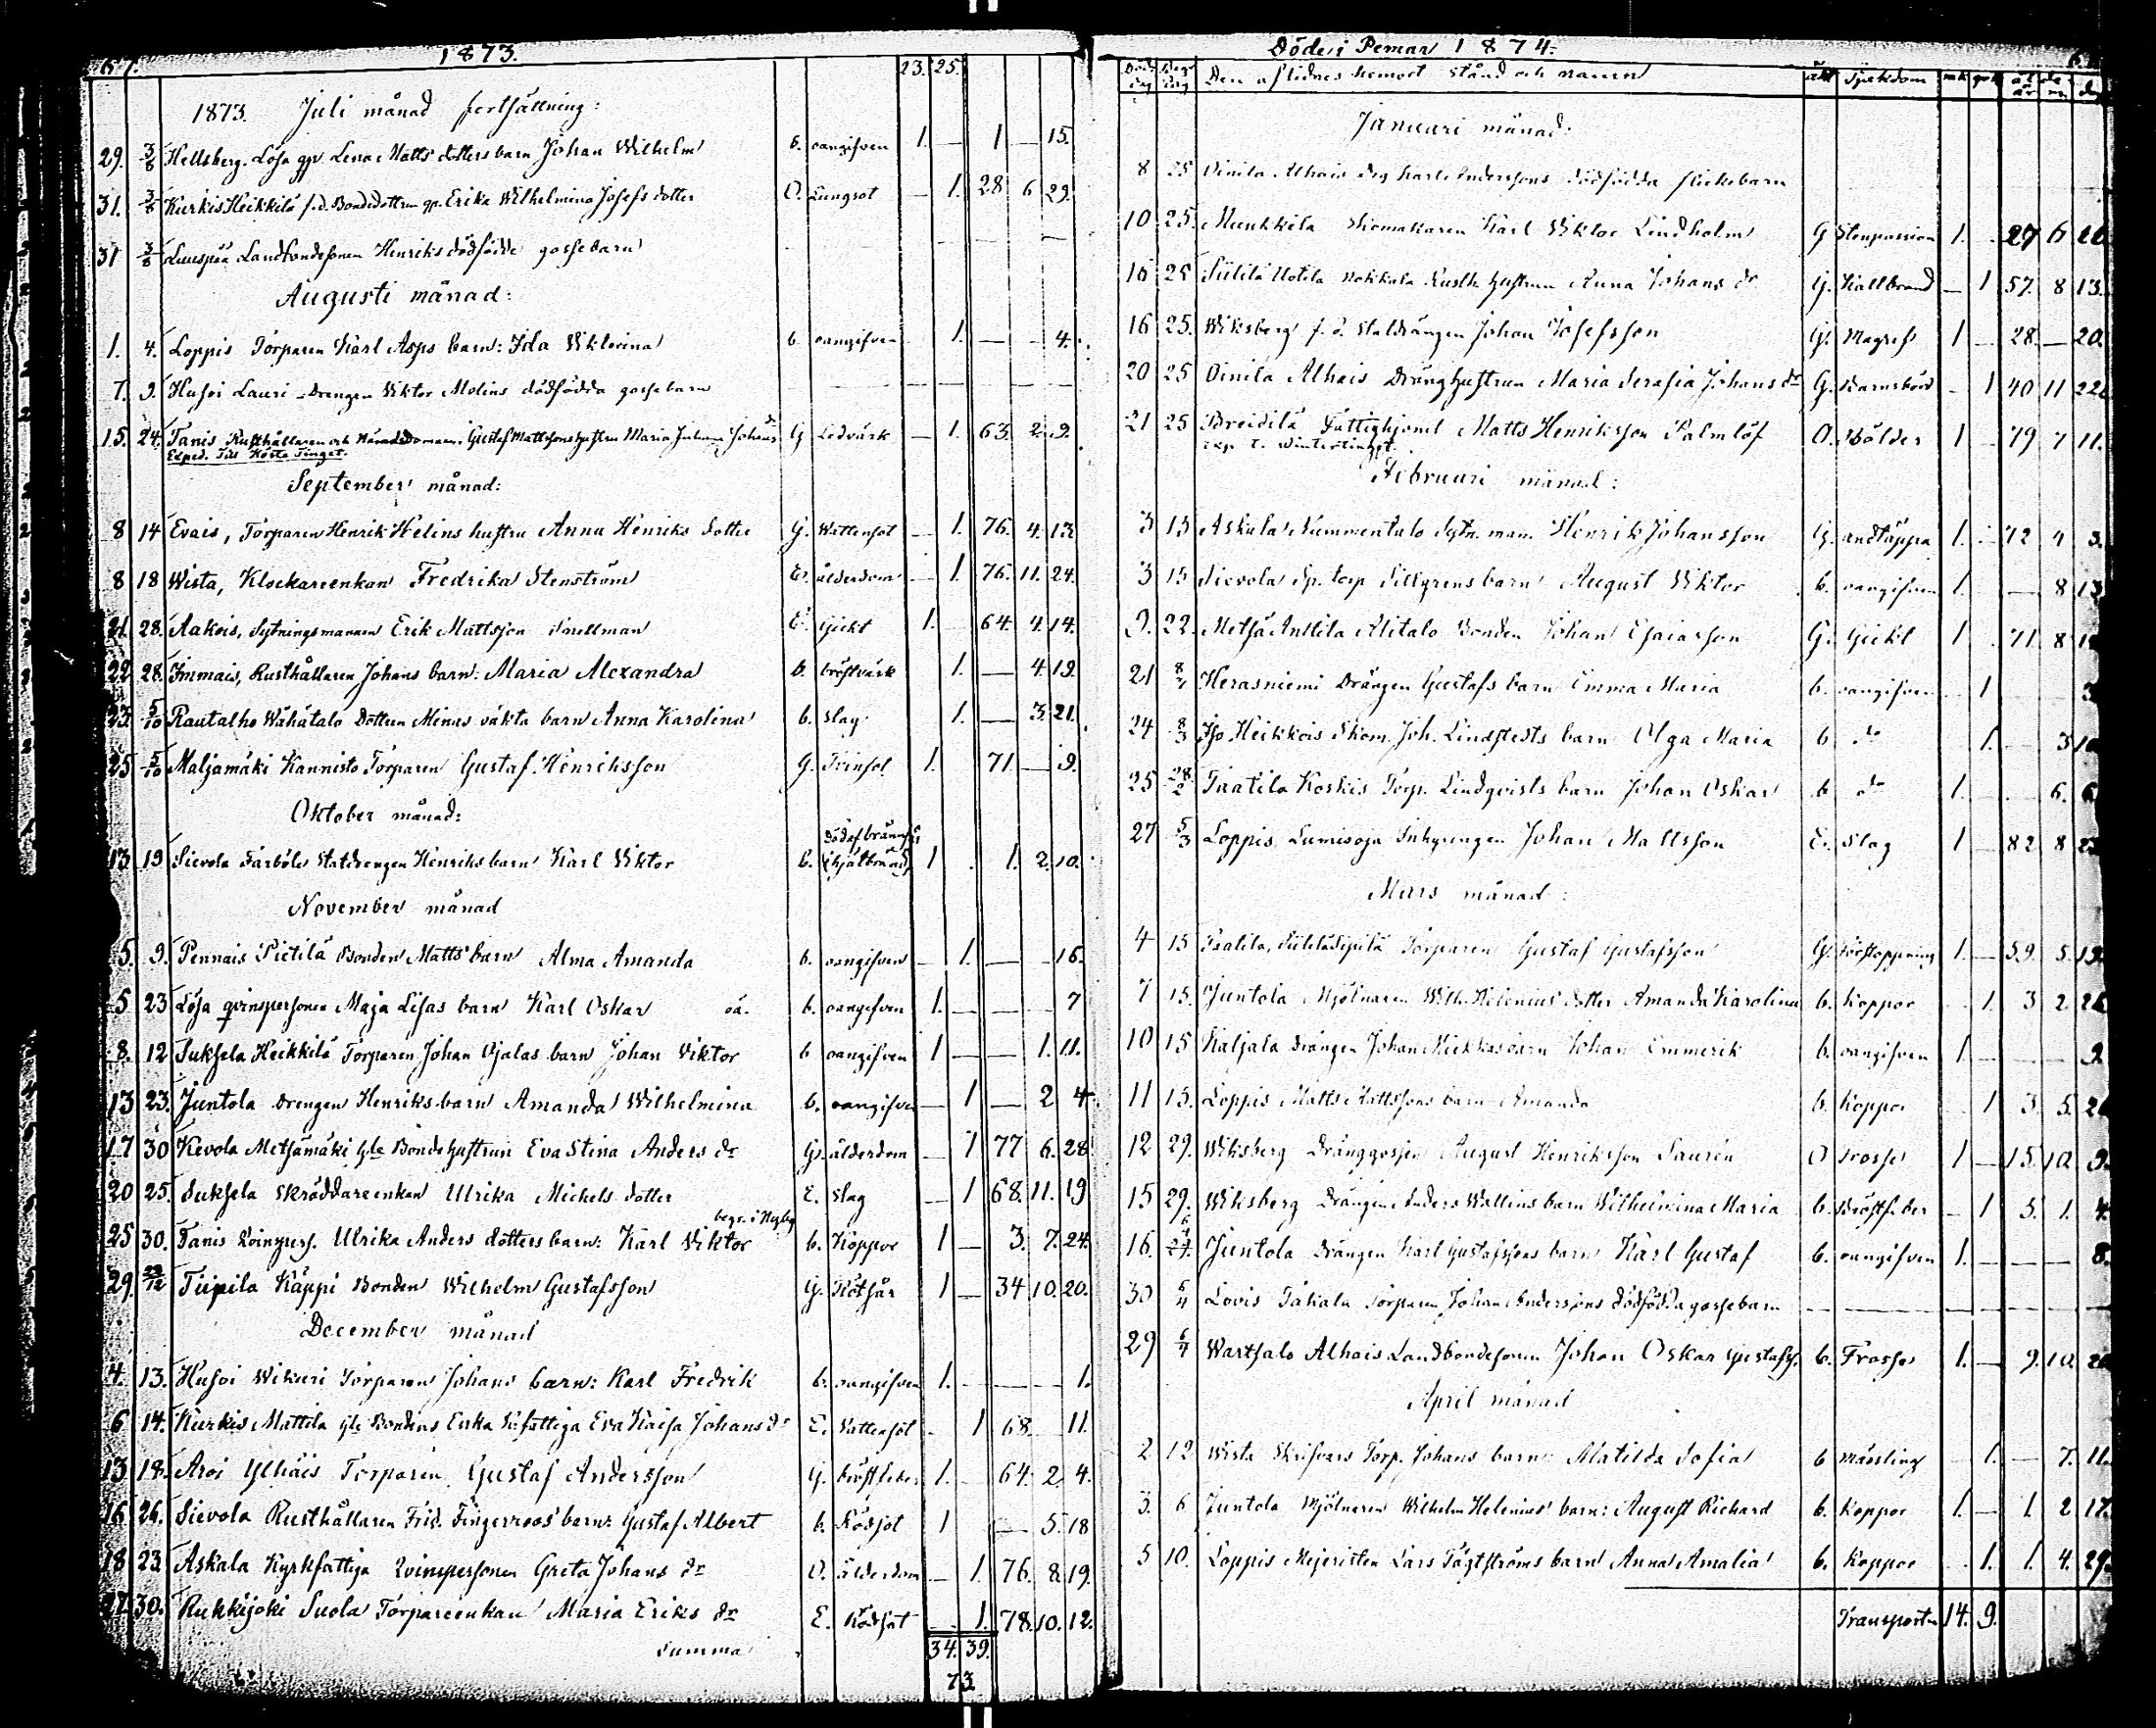 67. 1873. 23. 25.
1873. Juli månad fortsättning:
29. 3/8 Hellsberg. Lösa qp. Lena Matts dotters barn Johan Wilhelm b. oangifven 1. — 1 — 15.
31. 3/8 Kurkis Heikkilä f.d. Bondedottren qp. Erika Wilhelmina Josefs dotter O. Lungsot — 1. 28 6 29.
31 3/8 Landbondesonen Henriks dödfödde gossebarn
Augusti månad:
1. 4. Loppis Torparen Karl Asps barn: Ida Viktorina b. oangifven 1. — 4.
7. 9. Husoi Lauri Drengen Viktor Molins dödfödda gossebarn
15. 24. Tanis Rusthållaren och Nämndeman Gustaf Mattssons hustru Maria Juliana Johans dr G Ledvärk — 1. 63. 2. 9.
Exped. Till Höste Tinget.
September månad:
8 14 Evais, Torparen Henrik Helins hustru Anna Henriks dotter G. Wattensot — 1. 76. 4. 13.
8 18 Wista, Klockareenkan Fredrika Stenström E. ålderdom — 1. 76. 11. 24.
21. 28. Aakois, Sytningsmannen Erik Mattsson Snellman E. Gickt 1. 64. 4. 14.
22 28. Immais, Rusthållaren Johans barn: Maria Alexandra b. bröstvärk 1. — 4. 19.
23. 5/10 Rautalho Wähätalo Dottren Minas oäkta barn Anna Karolina b. Slag 1. — 3. 21.
25 5/10 Maljamäki Kannisto Torparen Gustaf Henriksson G. Tvinsot 1. 71. — 9.
Oktober månad:
13. 19 Sievola Färböle Statdrengen Henriks barn Karl Viktor b. Död af brännsår (ihjälbränd) 1 . 1. 2. 10.
November månad
5. 9. Pennais Pietilä Bonden Matts barn Alma Amanda b. oangifven — 1. — 16.
5 23 Lösa qvinspersonen Maja Lisas barn Karl Oskar oä. b. oangifven 1. — 7
8. 12 Suksela Heikkilä Torparen Johan Ojalas barn Johan Viktor b oangifven 1 — 1. 11.
13 23. Juntola Drengen Henriks barn Amanda Wilhelmina b. oangifven — 1 — 2 4.
17 30 Kevola Metsämäki Gle Bondehustrun Eva Stina Anders dr G. ålderdom — 1 77 6. 28
20 25. Suksela Skräddareenkan Ulrika Michels dotter E. Slag — 1 68. 11. 19
25 30. Tanis Qvinspers. Ulrika Anders dotters barn: Karl Viktor begr. i b. Koppor 1 — 3. 7. 24.
29. 29/12 Tiipila Käppi Bonden Wilhelm Gustafsson G. Rötsår 1 — 34 10. 20.
December månad
4. 13. Husoi Wikuri Torparen Johans barn: Karl Fredrik b. oangifven 1. — 1.
6 14. Kurkis Mattila Gle Bondens Enka Eva Kaisa Johans dr E. Vattensot 1 68. 11.
13 18. Aroi Ylhäis Torparen Gustaf Andersson G. bröstfeber 1. — 64. 2. 4.
16. 26. Sievola Rusthållaren Frid. Fingerroos' barn: Gustaf Albert b. Rödsot 1 — 5. 18
18 23. Askala Kyrkfattiga Qvinspersonen Greta Johans dr O. ålderdom — 1. 76. 8. 19.
27. 30. Rukkijoki Suola Torpareenkan Maria Eriks dr E. Rödsot — 1. 78. 10. 12.
Summa 34. 39.
73.
Döde i Pemar 1874.
Död dag Begr dag Den aflidnes hemort stånd och namn Sjukdom mk qk år m d
Januari månad:
8 25 Oinila Alhais drg Karl Anderssons dödfödda flickebarn
10 25. Munkkila Skomakaren Karl Viktor Lindholm G Stenpassion 1. 27 6 20
16 25 Siitilä Uotila Nokkala Rusth. hustrun Anna Johans dr G. Kallbrand — 1 57. 8 13.
16 25. Wiksberg f.d. Statdrängen Johan Josefsson G. Magref 1 — 28. — 20.
20 25 Oinila Alhais Dränghustrun Maria Serafia Johans dr G. Barnsbörd — 1 40 11 22.
21 25 Breidilä Fattighjonet Matts Henriksson Palmlöf O. Bölder 1 — 79 7 11.
exp. t. Wintertinget.
Februari månad:
3 15 Askala Nummentalo Sytn. man. Henrik Johansson G. andtäppa 1. — 72 4 3.
3 15 Sievola Sp. torp Sillgrens barn August Viktor b. oangifven 1. — 8 13
9. 22. Metsä Anttila Alitalo Bonden Johan Esaiasson G. Gickt 1 . 71. 8
21 8/3 Kerasniemi Drängen Gustafs barn Emma Maria b. oangifven 1
24 8/3 Iso Heikkois Skom. Joh. Lindstedts barn Olga Maria b do 1. 3
25 28/2 Taatila Koskis Torp. Lindqvists barn Johan Oskar b do 1. 6. 6
27 5/3 Loppis Lumisoja Inhysingen Johan Mattsson E. Slag 1 — 82 8
Mars månad:
4 15 Taatila, Torparen Gustaf Gustafsson G. Förstoppning 1. — 59. 5. 19.
7 15. Juntola Mjölnaren Wilh. Helenius' dotter Amanda Karolina b. Koppor 1. 3 2
10 15 Kaljala Drängen Johan barn Johan Emmerik b. oangifven 1 9.
11 15. Loppis Matts Mattssons barn Amanda b. Koppor 1 3. 5.
12 29. Wiksberg Dränggossen August Henriksson Saurén O Frossa 1 — 15. 10. 9.
15 29. Wiksberg Drängen Anders Wallins barn Wilhelmina Maria b. Bröstfeber — 1 3. 1. 4.
16. 6/4 Juntola Drängen Karl Gustafssons barn Karl Gustaf b. oangifven 1. — 8.
30 6/4 Lovis Takala Torparen Johan Anderssons dödfödda gossebarn
29 6/4 Wartsalo Alhais Landbondesonen Johan Oskar Gustafss. b. Frossa 1. — 9. 10.
April månad
2 12 Wista Skrifvars Torp. Johans barn: Matilda Sofia b mässling 1. — 7. 11.
3. 6 Juntola Mjölnaren Wilhelm Helenius' barn: August Richard b. Koppor 1. — 1. 2 17.
5 10. Loppis Mejeristen Lars Tägtströms barn Anna Amalia b. Koppor . 1. 1. 4. 29.
Transport 14. 9.